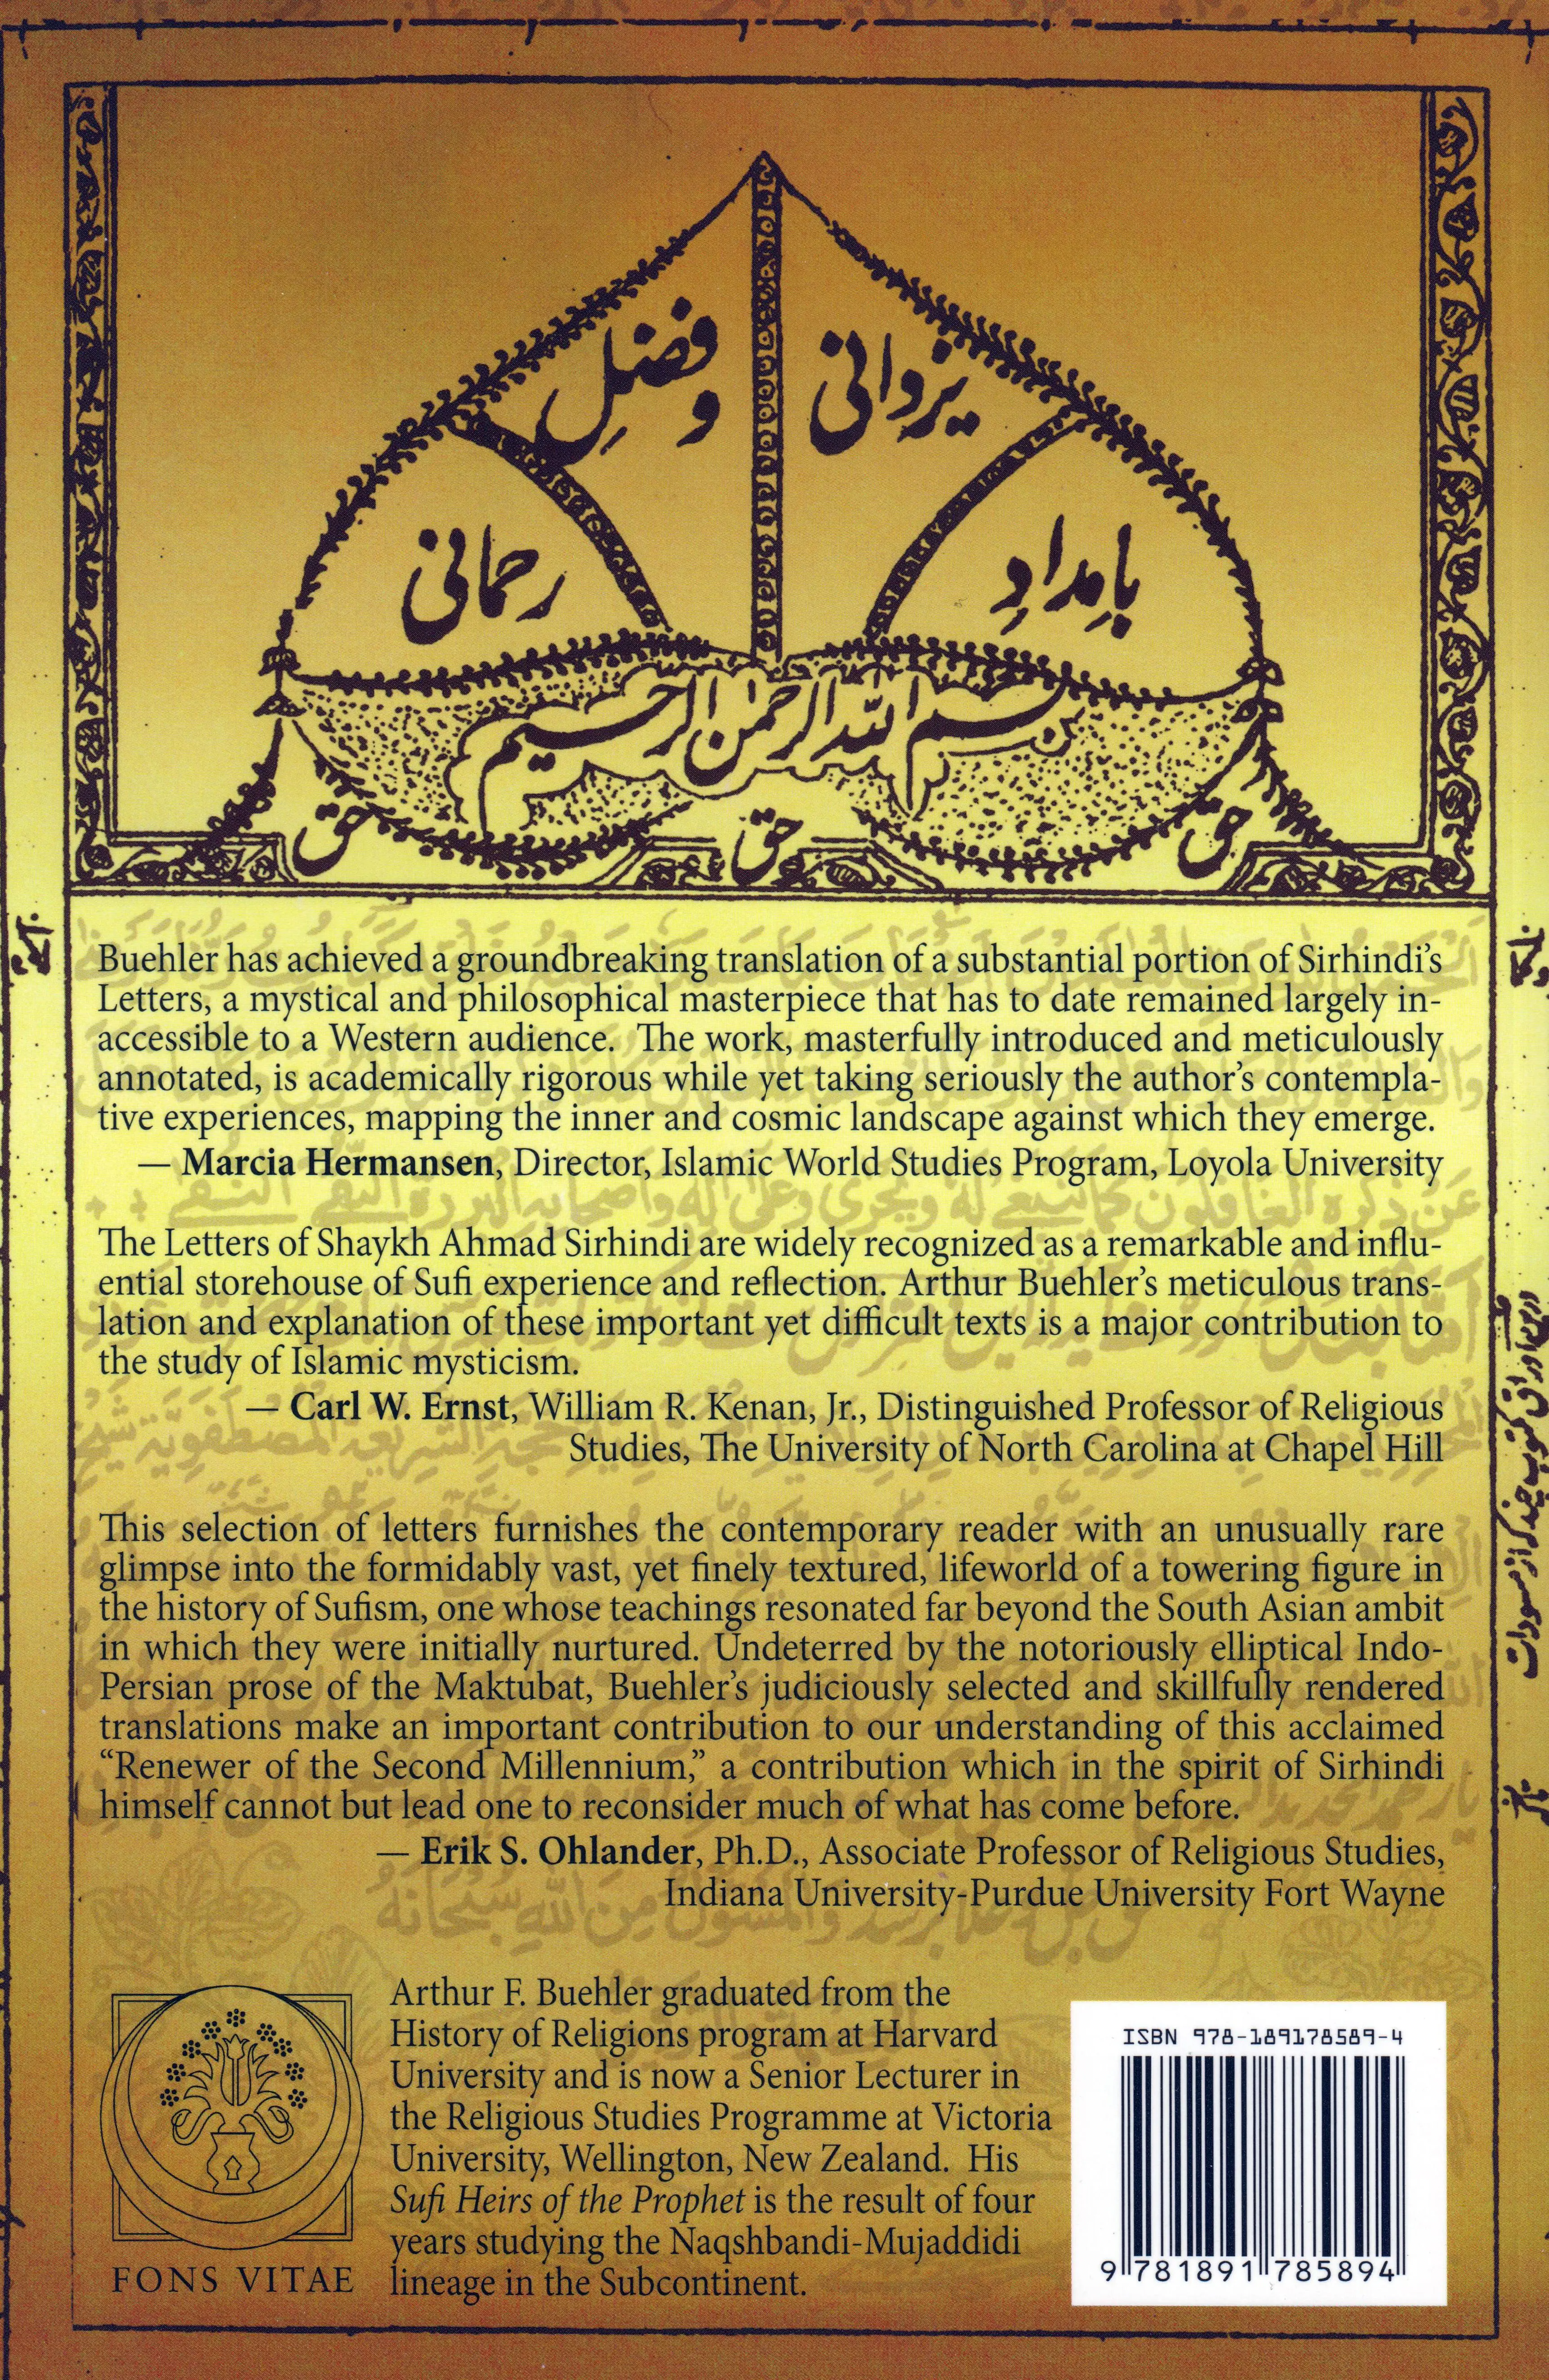 بامدادِ
یزدانی
و فضلِ
رحمانی
بسم الله الرحمن الرحیم
حق
حق
حق
Buehler has achieved a groundbreaking translation of a substantial portion of Sirhindi’s
Letters, a mystical and philosophical masterpiece that has to date remained largely in-
accessible to a Western audience. The work, masterfully introduced and meticulously
annotated, is academically rigorous while yet taking seriously the author’s contempla-
tive experiences, mapping the inner and cosmic landscape against which they emerge.
— Marcia Hermansen, Director, Islamic World Studies Program, Loyola University
The Letters of Shaykh Ahmad Sirhindi are widely recognized as a remarkable and influ-
ential storehouse of Sufi experience and reflection. Arthur Buehler’s meticulous trans-
lation and explanation of these important yet difficult texts is a major contribution to
the study of Islamic mysticism.
— Carl W. Ernst, William R. Kenan, Jr., Distinguished Professor of Religious
Studies, The University of North Carolina at Chapel Hill
This selection of letters furnishes the contemporary reader with an unusually rare
glimpse into the formidably vast, yet finely textured, lifeworld of a towering figure in
the history of Sufism, one whose teachings resonated far beyond the South Asian ambit
in which they were initially nurtured. Undeterred by the notoriously elliptical Indo-
Persian prose of the Maktubat, Buehler’s judiciously selected and skillfully rendered
translations make an important contribution to our understanding of this acclaimed
“Renewer of the Second Millennium,” a contribution which in the spirit of Sirhindi
himself cannot but lead one to reconsider much of what has come before.
— Erik S. Ohlander, Ph.D., Associate Professor of Religious Studies,
Indiana University-Purdue University Fort Wayne
Arthur F. Buehler graduated from the
History of Religions program at Harvard
University and is now a Senior Lecturer in
the Religious Studies Programme at Victoria
University, Wellington, New Zealand. His
Sufi Heirs of the Prophet is the result of four
years studying the Naqshbandi-Mujaddidi
lineage in the Subcontinent.
FONS VITAE
ISBN 978-189178589-4
9 781891 785894